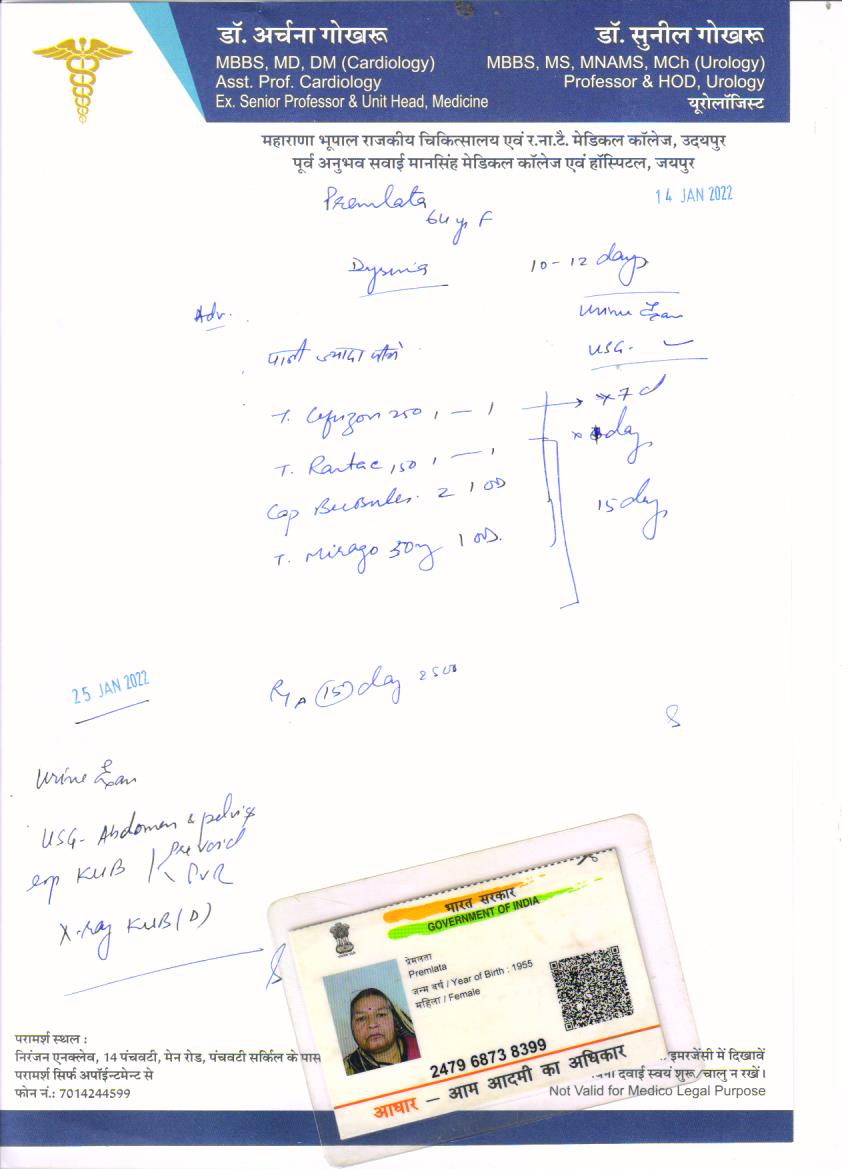 डॉ. अर्चना गोखरू
MBBS, MD, DM (Cardiology)
Asst. Prof. Cardiology
Ex. Senior Professor & Unit Head, Medicine
डॉ. सुनील गोखरू
MBBS, MS, MNAMS, MCh (Urology)
Professor & HOD, Urology
यूरोलॉजिस्ट
महाराणा भूपाल राजकीय चिकित्सालय एवं र.ना.टै. मेडिकल कॉलेज, उदयपुर
पूर्व अनुभव सवाई मानसिंह मेडिकल कॉलेज एवं हॉस्पिटल, जयपुर
14 JAN 2022
Premlata
64 y F
10-12 days
Adv.
Urine Exam
USG.
पानी ज्यादा पीये
T. 250 1 — 1
x 7 d
T. Rantac 150 1 — 1
day
Cap 2 1 OD
15 day
T. Mirago 50mg 1 OD.
25 JAN 2022
15 day
Urine Exam
USG- Abdomen & pelvis
KUB Pre void
PVR
X-ray KUB (D)
भारत सरकार
GOVERNMENT OF INDIA
प्रेमलता
Premlata
जन्म वर्ष / Year of Birth : 1955
महिला / Female
2479 6873 8399
आधार – आम आदमी का अधिकार
परामर्श स्थल :
निरंजन एनक्लेव, 14 पंचवटी, मेन रोड, पंचवटी सर्किल के पास
परामर्श सिर्फ अपॉईन्टमेन्ट से
फोन नं.: 7014244599
इमरजेंसी में दिखावें
दवाई स्वयं शुरू/चालु न रखें।
Not Valid for Medico Legal Purpose